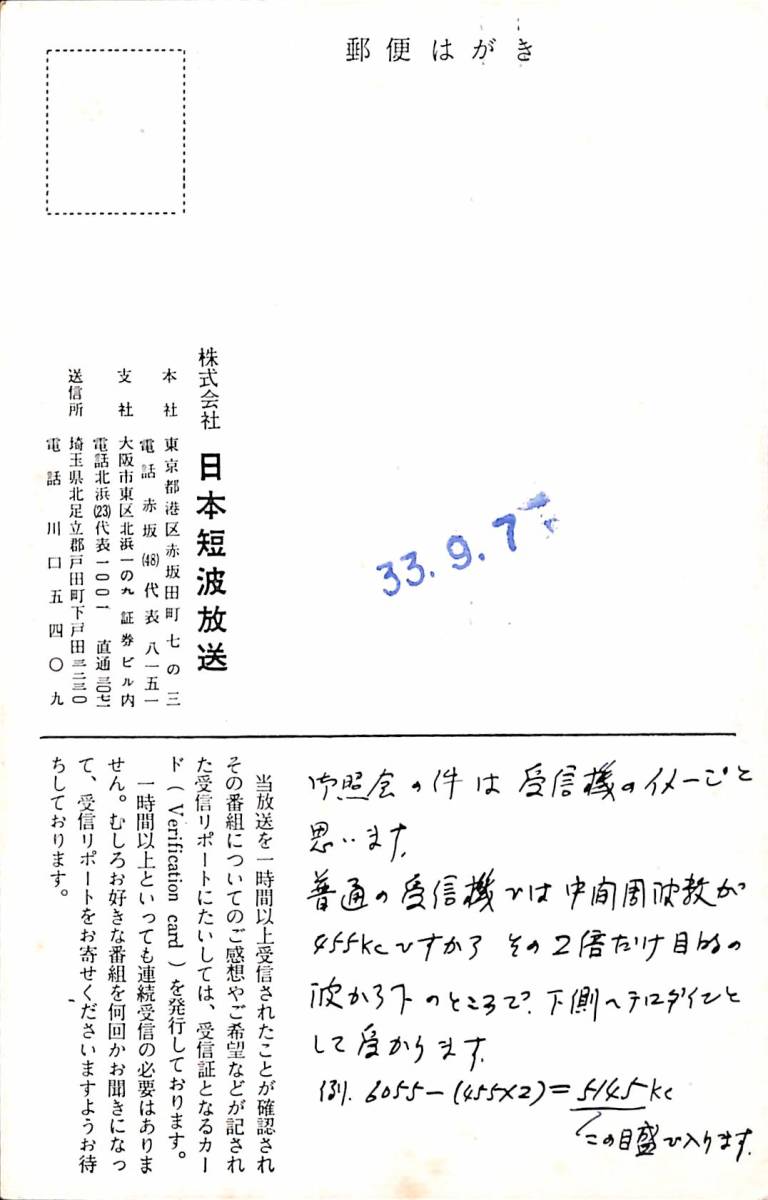 郵便はがき
株式会社 日本短波放送
本社 東京都港区赤坂田町七の三
電話 赤坂(48)代表八一五一
支社 大阪市東区北浜一の九 証券ビル内
電話北浜(23)代表一〇〇一 直通三〇七一
送信所 埼玉県北足立郡戸田町下戸田三二三〇
電話 川口五四〇九
33.9.7
当放送を一時間以上受信されたことが確認され
その番組についてのご感想やご希望などが記され
た受信リポートにたいしては、受信証となるカー
ド(Verification card)を発行しております。
一時間以上といっても連続受信の必要はありま
せん。むしろお好きな番組を何回かお聞きになっ
て、受信リポートをお寄せくださいますようお待
ちしております。
御照会の件は受信機のイメージと
思います。
普通の受信機では中間周波数が
455kcですから その2倍だけ目的の
波から下のところで、下側ヘテロダインと
して受かります。
例. 6055-(455×2)=5145kc
この目盛で入ります。